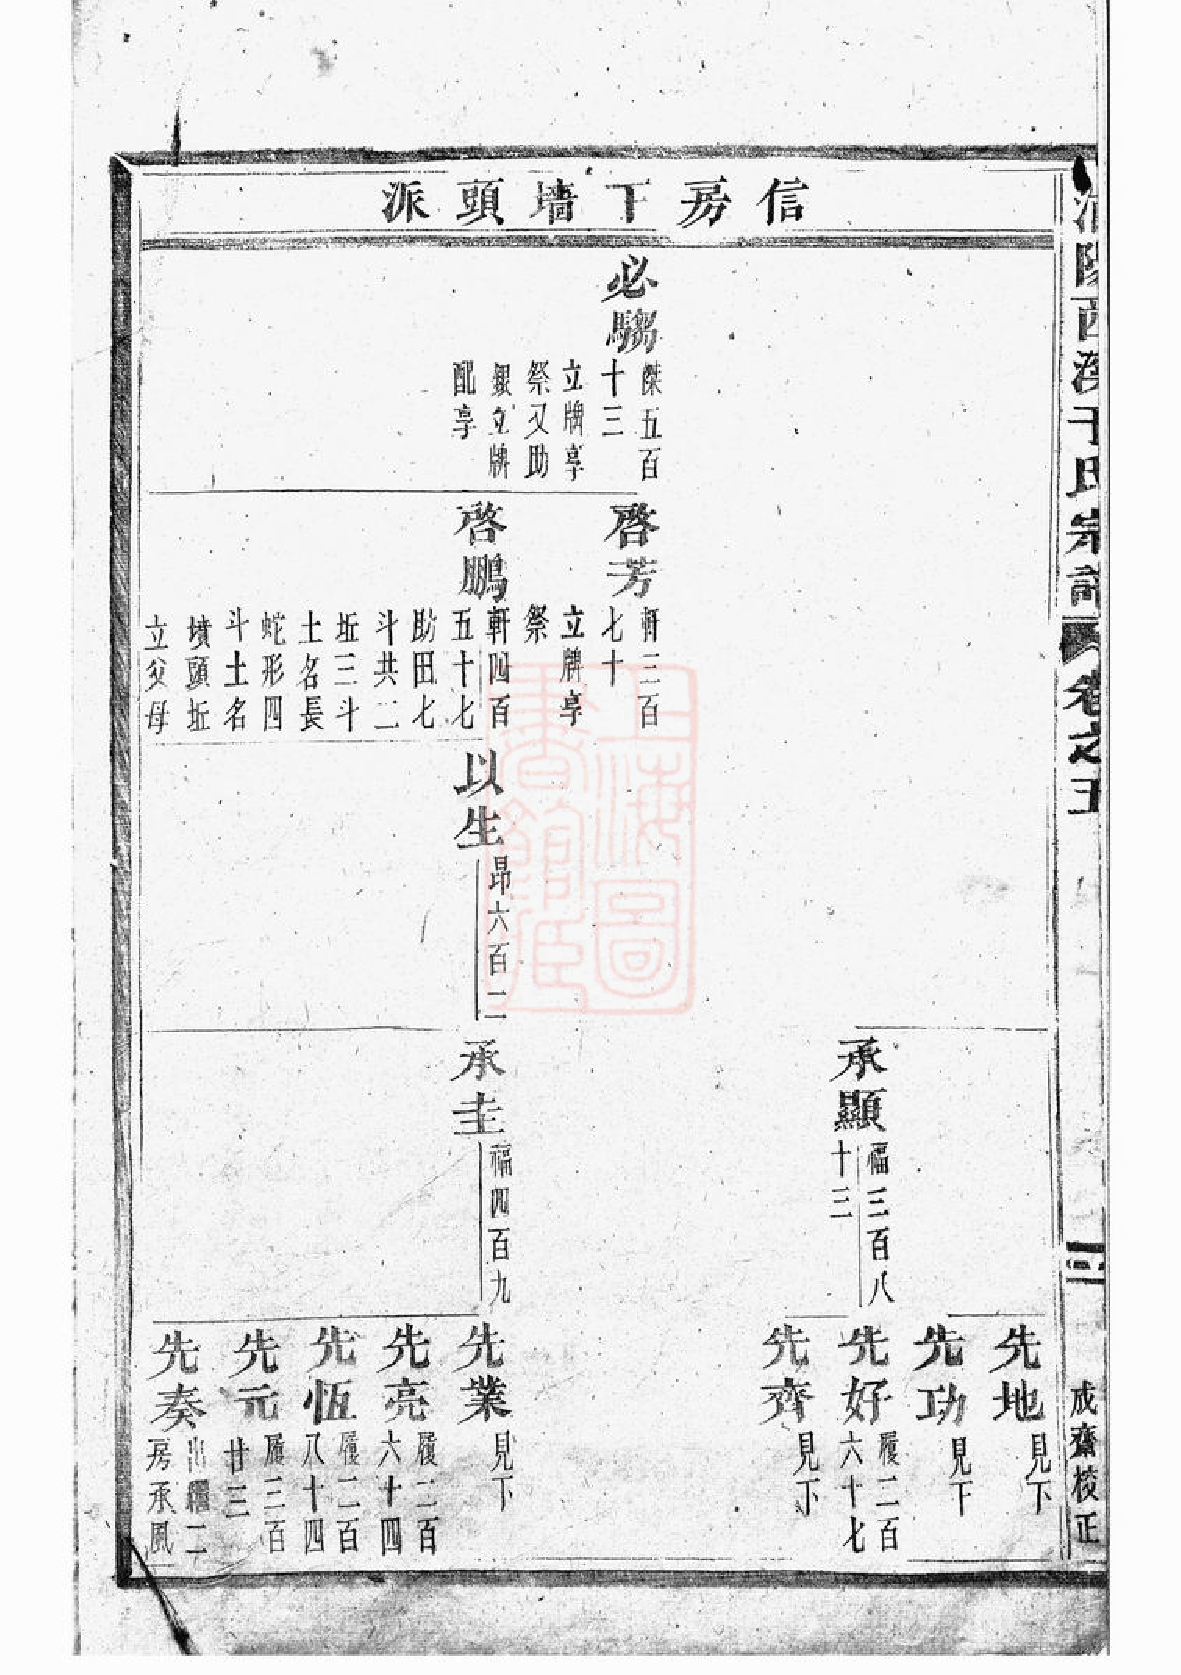 信房下墻頭派
必騶
傑五百
十三
立牌享
祭又助
銀立牌
配享
啓芳
軒三百
七十
立牌享
祭
啓鵬
軒四百
五十七
助田七
斗共二
坵三斗
土名長
蛇形四
斗土名
墳頭坵
立父母
以生
昂六百二
承顯
福三百八
十三
承圭
福四百九
先地
見下
先功
見下
先好
履二百
六十七
先齊
見下
先業
見下
先亮
履二百
六十四
先恆
履二百
八十四
先元
履三百
廿三
先奏
出繼二
房承鳳
陽西溪于氏宗譜
卷之五
三
成齋梭正
上海圖
書館藏